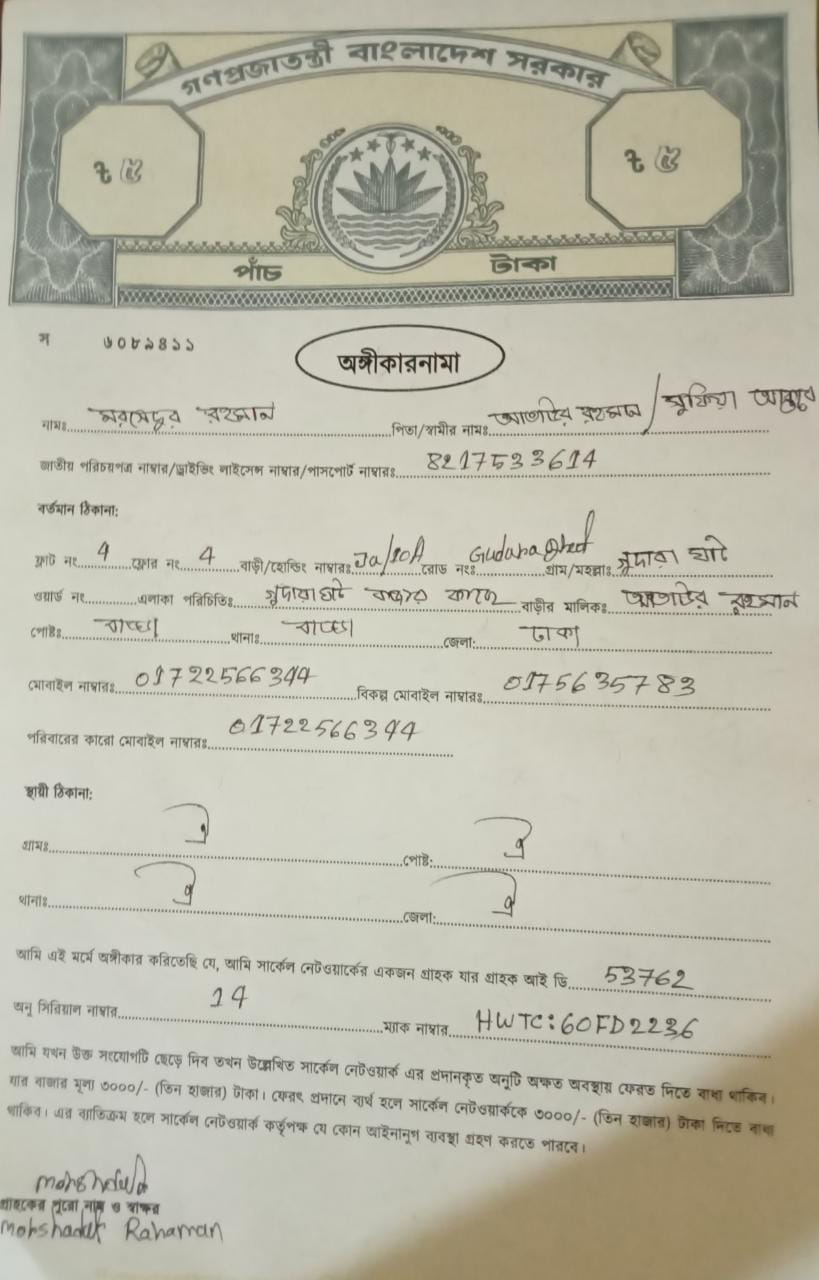 গণপ্রজাতন্ত্রী বাংলাদেশ সরকার
৳ ৫ ৳ ৫
পাঁচ টাকা
স ৬০৮৯৪১১
অঙ্গীকারনামা
নামঃ মোরসেদুর রহমান পিতা/স্বামীর নামঃ আতাউর রহমান / সুফিয়া
জাতীয় পরিচয়পত্র নাম্বার/ড্রাইভিং লাইসেন্স নাম্বার/পাসপোর্ট নাম্বারঃ 8217533614
বর্তমান ঠিকানা:
ফ্লাট নং 4 ফ্লোর নং 4 বাড়ী/হোল্ডিং নাম্বারঃ Ja/10A রোড নংঃ Gudaraghat গ্রাম/মহল্লাঃ গুদারা ঘাট
ওয়ার্ড নং এলাকা পরিচিতিঃ গুদারাঘাট বাজার কাছে বাড়ীর মালিকঃ আতাউর রহমান
পোষ্টঃ বাড্ডা থানাঃ বাড্ডা জেলা: ঢাকা
মোবাইল নাম্বারঃ 01722566344 বিকল্প মোবাইল নাম্বারঃ 0175635783
পরিবারের কারো মোবাইল নাম্বারঃ 01722566344
স্থায়ী ঠিকানা:
গ্রামঃ ঐ পোষ্ট: ঐ
থানাঃ ঐ জেলা: ঐ
আমি এই মর্মে অঙ্গীকার করিতেছি যে, আমি সার্কেল নেটওয়ার্কের একজন গ্রাহক যার গ্রাহক আই ডি 53762
অনু সিরিয়াল নাম্বার 14 ম্যাক নাম্বার HWTC:60FD2236
আমি যখন উক্ত সংযোগটি ছেড়ে দিব তখন উল্লেখিত সার্কেল নেটওয়ার্ক এর প্রদানকৃত অনুটি অক্ষত অবস্থায় ফেরত দিতে বাধ্য থাকিব।
যার বাজার মূল্য ৩০০০/- (তিন হাজার) টাকা। ফেরৎ প্রদানে ব্যর্থ হলে সার্কেল নেটওয়ার্ককে ৩০০০/- (তিন হাজার) টাকা দিতে বাধ্য
থাকিব। এর ব্যতিক্রম হলে সার্কেল নেটওয়ার্ক কর্তৃপক্ষ যে কোন আইনানুগ ব্যবস্থা গ্রহণ করতে পারবে।
গ্রাহকের পুরো নাম ও স্বাক্ষর
Rahaman